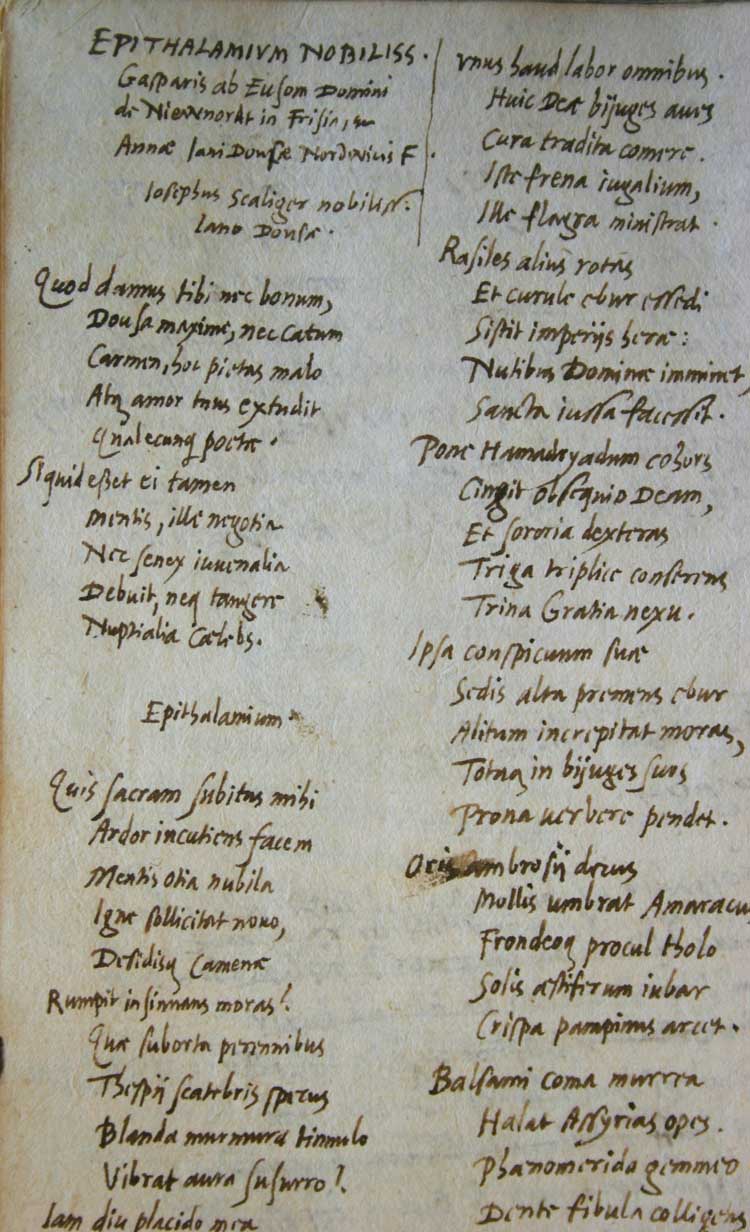 EPITHALAMIVM NOBILISS.
Gasparis ab Eusom Domini
de Niewnorht in Frisia, &
Annæ Iani Dousæ Nordovicis F.
Iosephus Scaliger nobiliss.
Iano Dousæ.
Quod damus tibi nec bonum,
Dousa maxime, nec catum
Carmen, hoc pietas malo
Atq amor tuus extudit
Qualecunq poetæ.
Siquid esset ei tamen
Mentis, ille negotia
Nec senex iuuenalia
Debuit, neq tangere
Nuptialia Cælebs.
Epithalamium
Quis sacram subitus mihi
Ardor incutiens facem
Mentis otia nubila
Igne sollicitat nouo,
Desidisq Camenæ
Rumpit insinuans moras?
Quæ suborta perennibus
Thespij scatebris specus
Blanda murmura tinnulo
Vibrat aura susurro?
Iam diu placido mea
vnus haud labor omnibus.
Huic Deæ bijuges aues
Cura tradita comere.
Iste frena iugalium,
Ille flagra ministrat.
Rasiles alius rotas
Et curule ebur essedi
Sistit imperijs heræ:
Nutibus Dominæ imminet,
Sancta iussa facessit.
Pone Hamadryadum cohors
Cingit obsequio Deam,
Et sororia dexteras
Triga triplice conserens
Trina Gratia nexu.
Ipsa conspicuum suæ
Sedis alta premens ebur
Alitum increpitat moras,
Totaq in bijuges suos
Prona uerbere pendet.
Oris ambrosij decus
Mollis umbrat Amaracus
Frondeoq procul tholo
Solis æstiferum iubar
Crispa pampinus arcet.
Balsami coma murrea
Halat Assyrias opes.
Phænomerida gemmeo
Dente fibula colligens